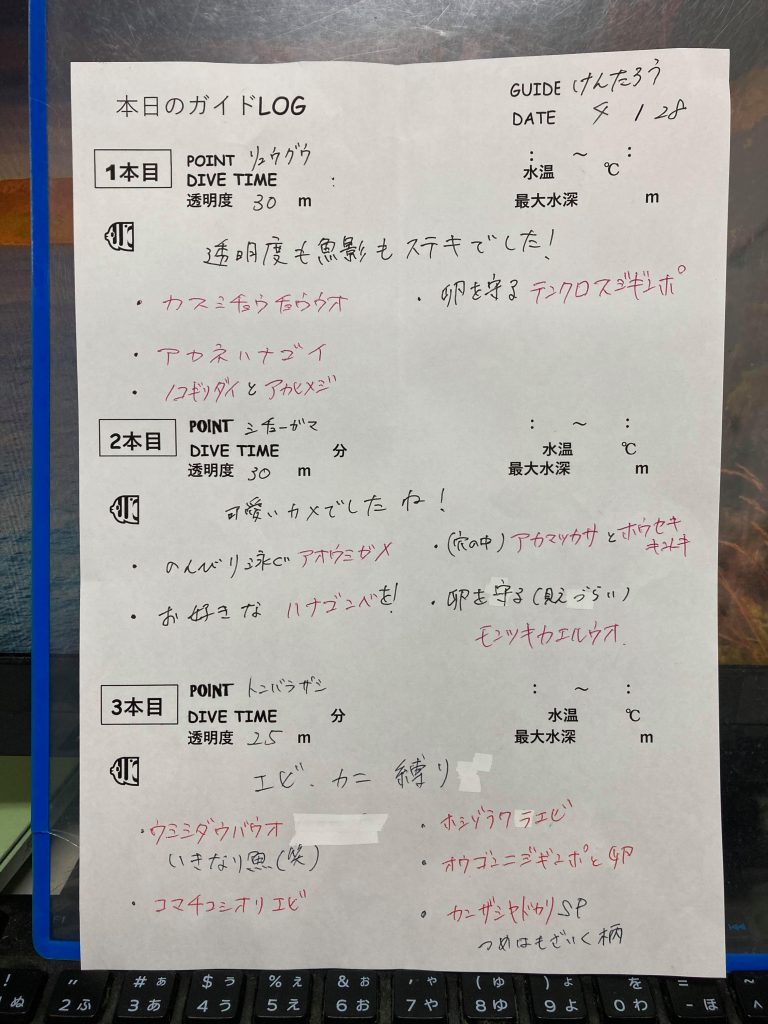 本日のガイドLOG
GUIDE けんたろう
DATE 4 / 28
1本目
POINT リュウグウ
DIVE TIME :
透明度 30 m
: ～ :
水温 ℃
最大水深 m
透明度も魚影もステキでした!
・カスミチョウチョウウオ
・アカネハナゴイ
・ノコギリダイとアカヒメジ
・卵を守るテンクロスジギンポ
2本目
POINT ミチューガマ
DIVE TIME 分
透明度 30 m
: ～ :
水温 ℃
最大水深 m
可愛いカメでしたね!
・のんびり泳ぐアオウミガメ
・お好きなハナゴンベを!
・(穴の中)アカマツカサとホウセキ
キントキ
・卵を守る(見えづらい)
モンツキカエルウオ.
3本目
POINT トンバラザシ
DIVE TIME 分
透明度 25 m
: ～ :
水温 ℃
最大水深 m
エビ.カニ縛り
・ウミシダウバウオ
いきなり魚(笑)
・コマチコシオリエビ
・ホシゾラワラエビ
・オウゴンニジギンポと卵
・カンザシヤドカリSP
つめはもざいく柄
! ぬ
" 2 ふ
# ぁ 3 あ
$ ぅ 4 う
% ぇ 5 え
& ぉ 6 お
' ゃ 7 や
( ゅ 8 ゆ
) ょ 9 よ
を 0 わ
= - ほ
~ ^ へ